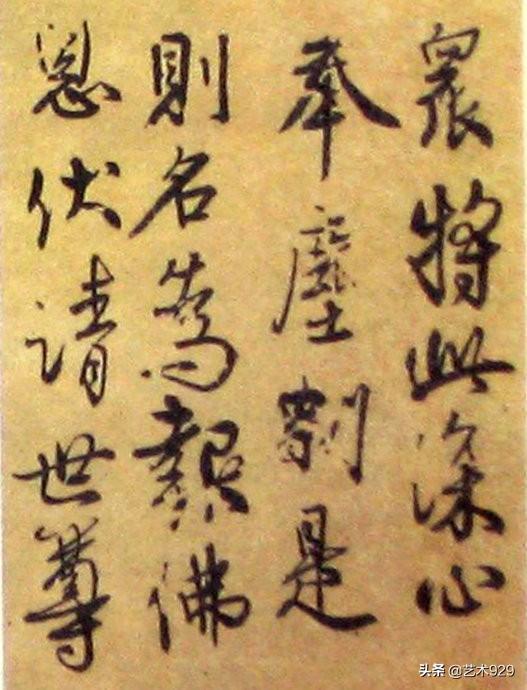 眾將此深心
奉塵刹是
則名為報佛
恩伏請世尊
头条 @艺术929